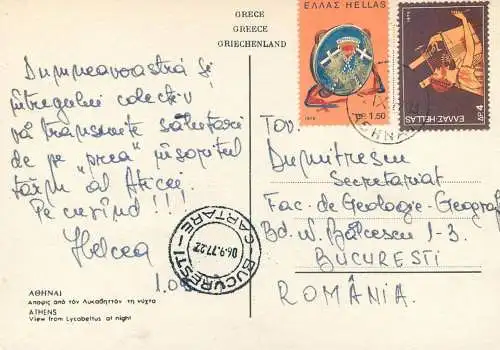 GRECE
GREECE
GRIECHENLAND
Dumneavoastră și
întregului colectiv
vă transmite salutări
de pe "prea" însoritul
tărîm al Aticei.
Pe curînd!!!
Helcea
ΑΘΗΝΑΙ
Αποψις από τόν Λυκαβηττόν τη νύχτα
ATHENS
View from Lycabettus at night
ΕΛΛΑΣ HELLAS
1975
ΔΡ 1,50
ΕΛΛΑΣ-HELLAS
ΔΡ 4
BUCURESTI
CARTARE
06.9.77.22
Tov.
Dumitrescu
Secretariat
Fac. de Geologie-Geograf
Bd. N. Bălcescu 1-3
BUCUREȘTI
ROMÂNIA.